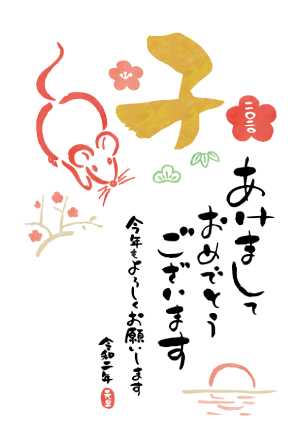 子
二〇二〇
あけまして
おめでとう
ございます
今年もよろしくお願いします
令和二年
元旦